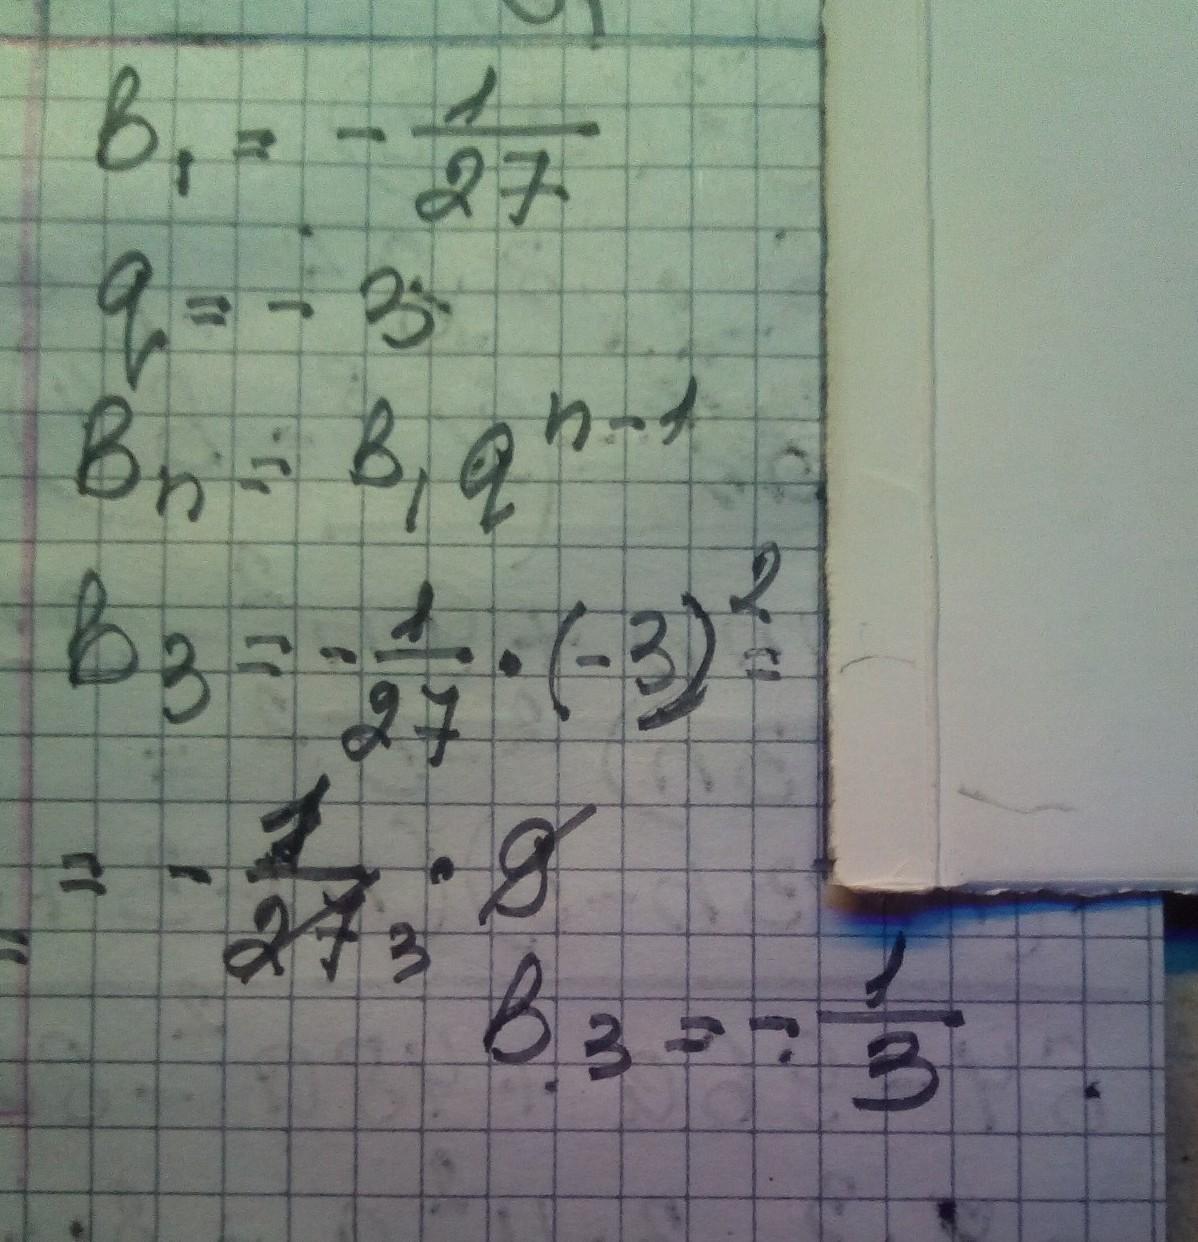 b₁ = - 1/27
q = - 3
bₙ = b₁qⁿ⁻¹
b₃ = - 1/27 · (-3)² =
= - 1/27 3 · 9
b₃ = - 1/3